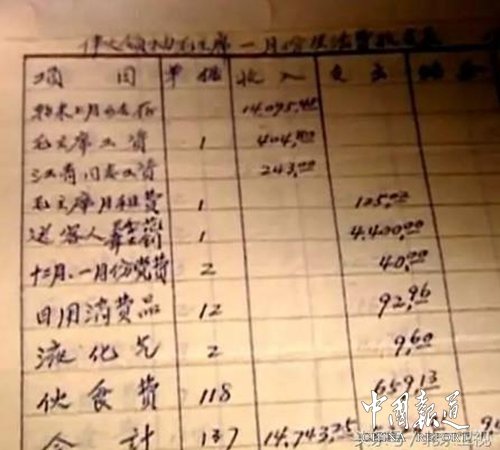 伟大领袖毛主席一月份生活费收支表
项目 单据 收入 支出 结存
上月结存 14,095.45
毛主席工资 1 404.80
江青同志工资 243.00
毛主席月租费 1 125.02
送客人 1 4,400.00
十二月、一月份党费 2 40.00
日用消费品 12 92.96
液化气 2 9.60
伙食费 118 659.13
合计 137 14,743.25
中国报道
CHINA REPORT